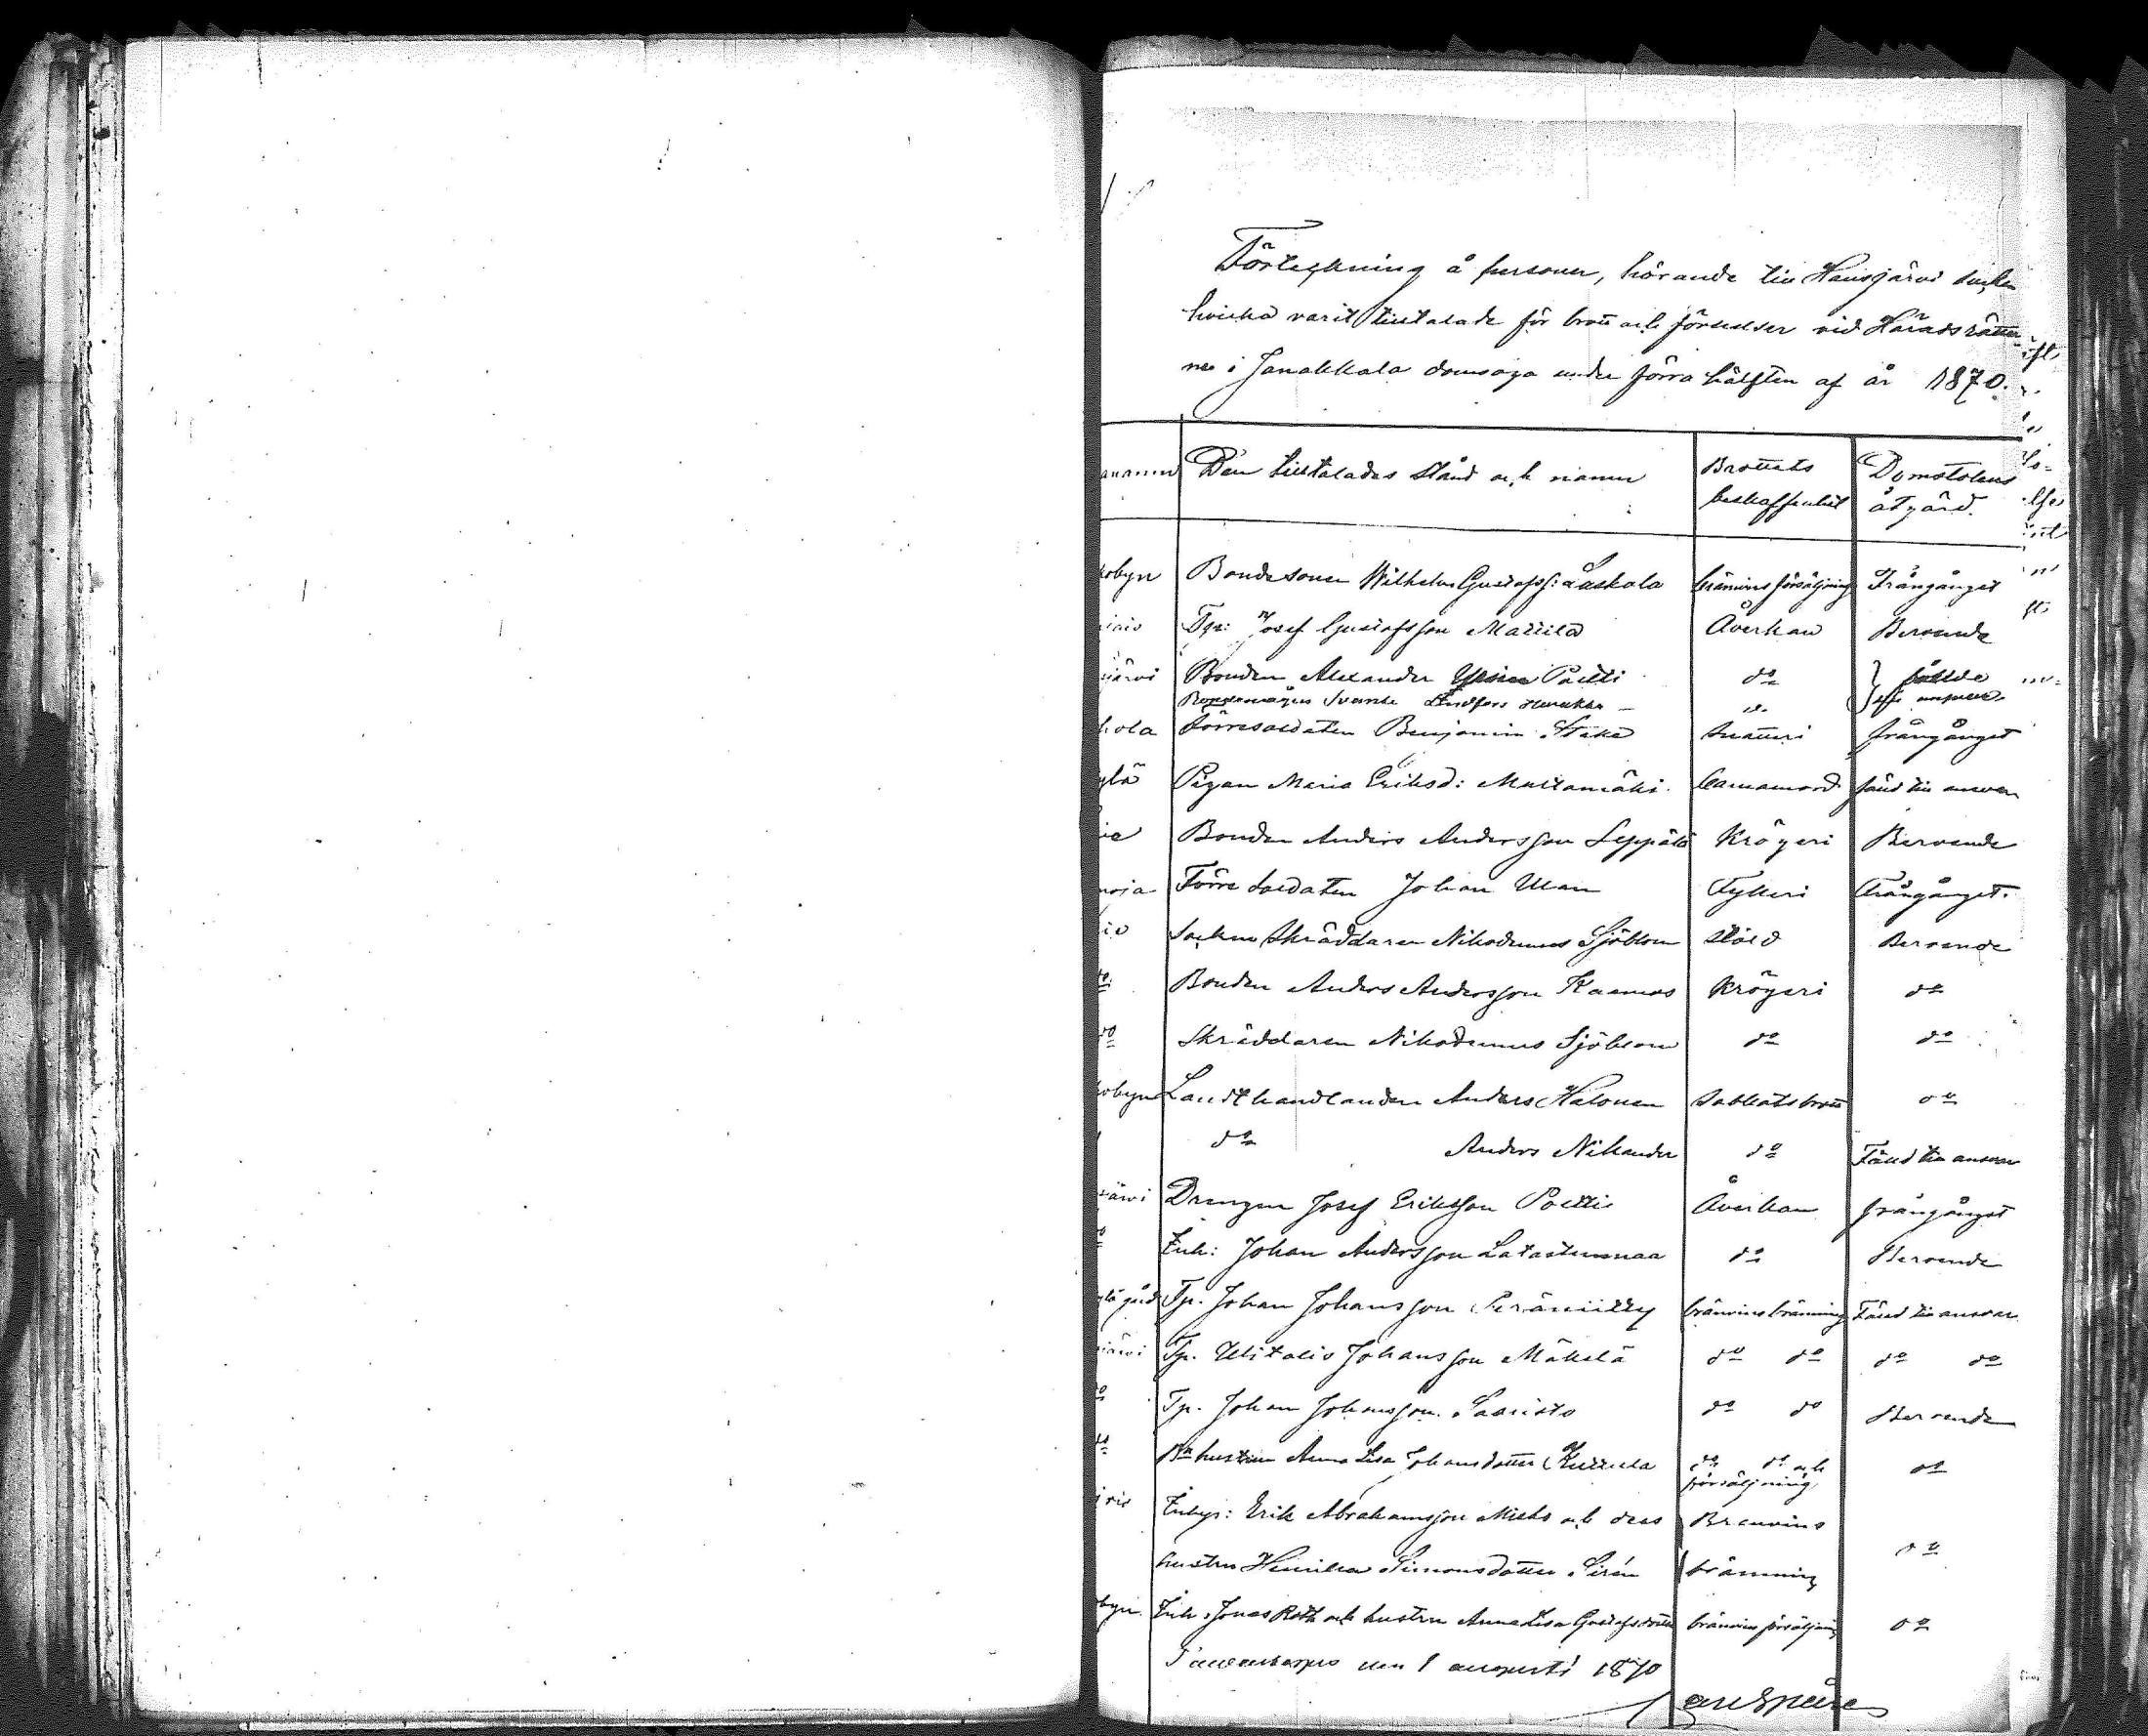 Förteckning å personer, hörande till Hausjärvi socken
hvilka varit tilltalade för brott och förseelser vid Häradsrätter
ne i Janakkala domsaga under förra hälften af år 1870.
Den tilltalades stånd och namn Brottets beskaffenhet Domstolens åtgärd.
kobyn Bondesonen Wilhelm Gustafss: Laskala bränvins försäljning Frångånget
Tp: Josef Gustafsson Mattila Åverkan Beroende
järvi Bonden Alexander Poltti do fällde
do
hola Förresoldaten Benjamin Stake Snatteri frångånget
ylä Pigan Maria Eriksd: Multamäki barnamord fälld till ansvar
Bonden Anders Andersson Seppälä Krögeri Beroende
noja Förre soldaten Johan Ulan Fylleri Frångånget.
Sockne Skräddaren Nikodemus Sjöblom Stöld Beroende
do Bonden Anders Andersson Kaamos Krögeri do
do Skräddaren Nikodemus Sjöblom do do
kobyn Landthandlanden Anders Halonen Sabbatsbrott do
do Anders Nikander do Fälld till ansvar
järvi Drengen Josef Eriksson Poltti Åverkan frångånget
do Inh: Johan Andersson Latastunmaa do Beroende
ylä gård Tp. Johan Johansson Peräniitty bränvins bränning Fälld till ansvar
järvi Tp. Vitalis Johansson Mäkelä do do do do
do Tp. Johan Johansson Saaristo do do Beroende
do hustrun Anna Lisa Johansdotter do do och försäljning do
Inhys: Erik Abrahamsson och dess Bränvins
hustru Henrika Simonsdotter Sirén bränning do
byn. Inh. Jonas Roth och hustru Anna Lisa Gustafsdotter bränvins försäljning do
den 1 augusti 1870